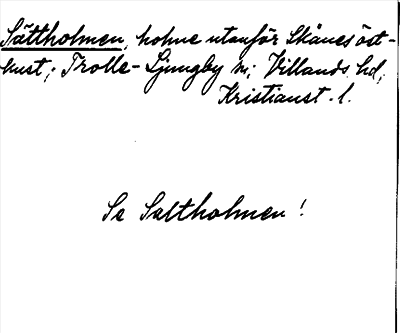 Sättholmen, holme utanför Skånes öst-
kust; Trolle-Ljungby sn; Villands hd;
Kristianst. l.
Se Saltholmen!